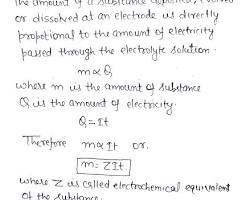 The amount of a substance deposited, evolved
or dissolved at an electrode is directly
propotional to the amount of electricity
passed through the electrolyte solution.
m∝Q
where m is the amount of substance
Q is the amount of electricity.
Q=It
Therefore m∝It or.
m=ZIt
where Z is called electrochemical equivalent
of the substance.